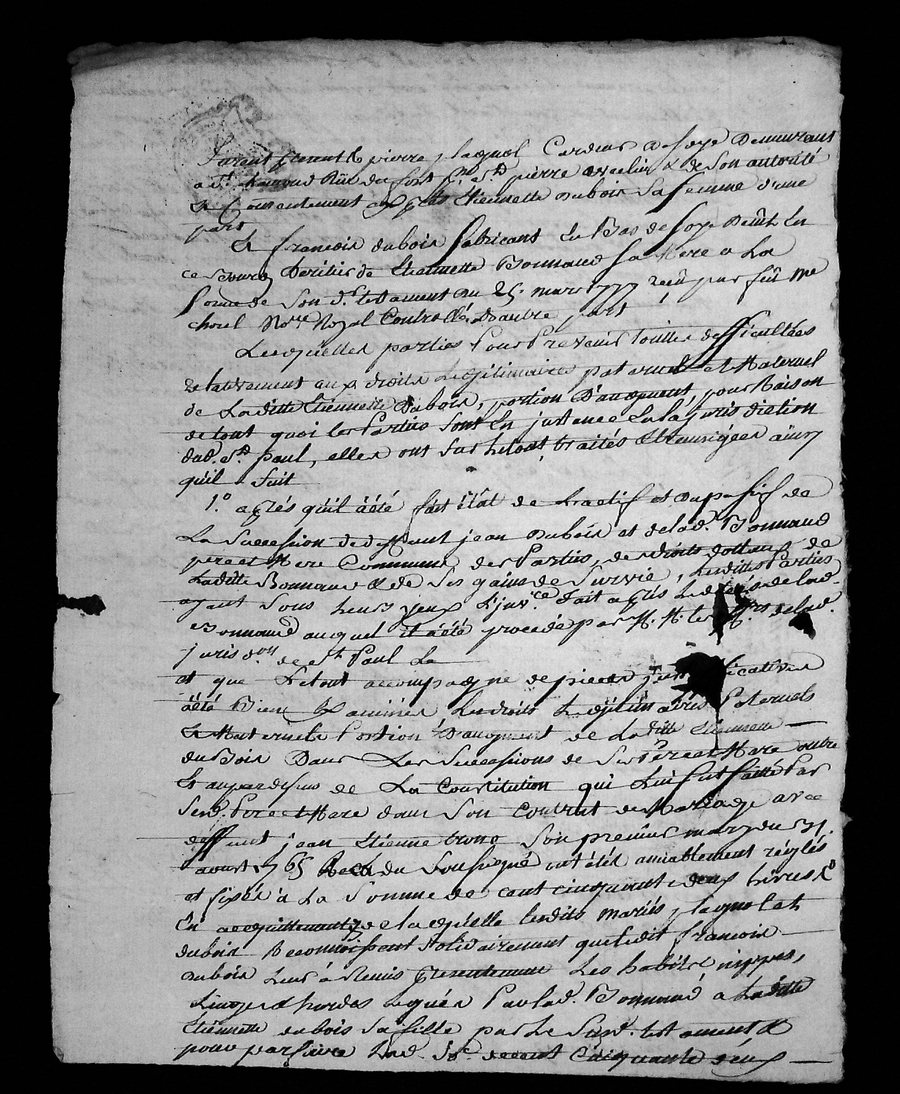 furent presents pierre lagnol Cardeur De soye Demeurant
a St chamond Rüe du fort Psse St pierre avec lui & de son autorité
et Consentement Etiennette dubois sa femme d'une
part
Et françois dubois fabricant En Bas de soye De cette
ce Bourg heritier de Etiennette Bonnaud sa Mere a La
forme de Son d. testament du 25 mars 1777 reçû par feû Me
chorel Nore Royal Controllé D'autre part
Lesquelles parties Pour Prevenir toutes difficultées
Relativement aux droits Legitimaires paternel et Maternel
de Laditte Etiennette Dubois, portion D'augment, pour Raison
de tout quoi les Parties sont En instance En la jurisdiction
dud. St paul, elles ont sur le tout traités & transigées ainsy
qu'il suit
1.o après qu'il a été fait Etat de Lactif et Du passif de
La Succession de deffunt jean Dubois et de lad. Bonnaud
pere et Mere Commune des Parties, de droits dottaux de
Laditte Bonnaud & de Ses gains de Survie, Lesdittes Parties
ayant Sous Leurs yeux L'inv.re fait après Le décès de lad.
Bonnaud auquel il a été procédé par M. M. les de lad.
juris.on de St Paul Le
et que Le tout accompagné de pieces justificatives
a été Bien Examiné, Les droits Legitimaires Paternels
et Maternels Portion D'augment de Laditte Etiennette
du Bois Dans Les Successions de Ses Pere et Mere outre
Et au par dessus de La Constitution qui Lui fut faitte Par
Sesd. Pere et Mere dans Son Contrat de Mariage avec
deffunt jean Etienne Son premier mary du 31.
aoust 1765 Reçu du Soussigné ont étés amiablement réglés
et fixés à La Somme de cent cinquante deux Livres
En acquittement de laquelle lesdits mariés lagnol et
dubois Reconnoissent Solidairement que ledit françois
Dubois Leur a Remis presentement Les habits, nippes,
Linges & hardes Legués Par lad. Bonnaud a Laditte
Etiennette dubois sa fille par Le Susd. testament &
pour parfaire Lad. So.e de cent Cinquante deux